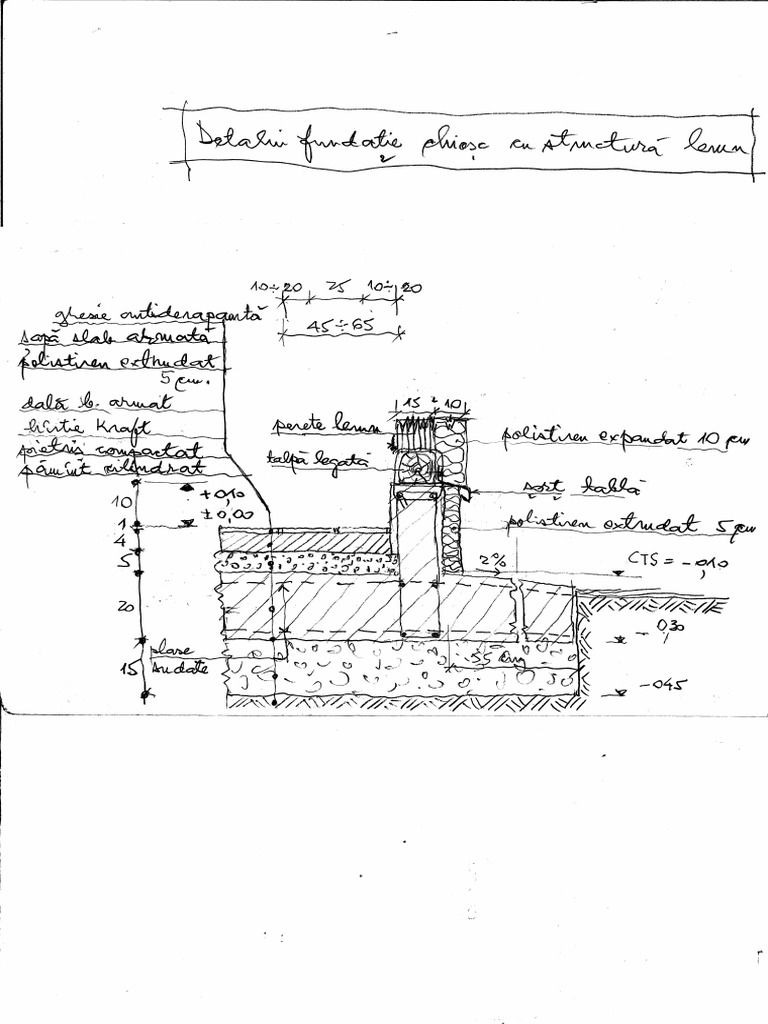 Detaliu fundație chioșc cu structură lemn
10÷20 25 10÷20
45÷65
gresie antiderapantă
șapă slab armată
polistiren extrudat
5 cm.
dală b. armat
hîrtie Kraft
pietriș compactat
pămînt cilindrat
15 2 10
perete lemn
talpă legată
polistiren expandat 10 cm
șorț tablă
polistiren extrudat 5 cm
+0,10
±0,00
10
1
4
5
20
15
2%
CTS = -0,10
-0,30
plase
sudate
55 cm
-045